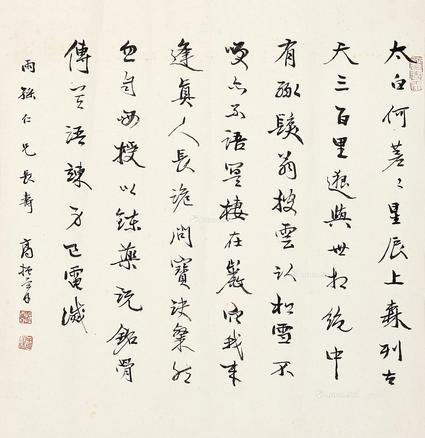 太白何蒼々星辰上森列去
天三百里邈與世相絕中
有綠髮翁披雲臥松雪不
笑亦不語冥棲在巖穴我來
逢眞人長跪問寶訣粲然
忽自哂授以鍊藥說銘骨
傳其語竦身已電滅
雨 仁兄長壽 高振霄